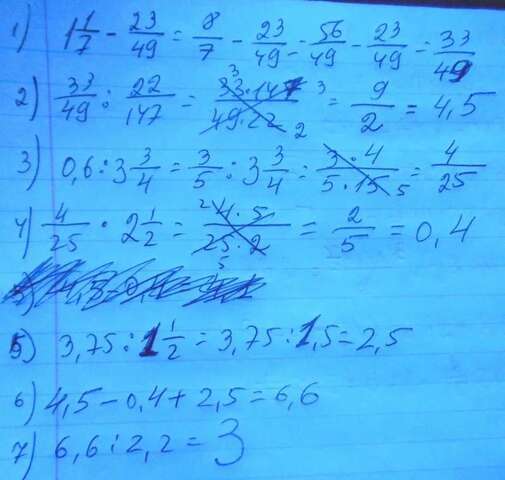 1) 1 1/7 - 23/49 = 8/7 - 23/49 = 56/49 - 23/49 = 33/49
2) 33/49 : 22/147 = 33·147/49·22 3 3 2 = 9/2 = 4,5
3) 0,6 : 3 3/4 = 3/5 : 3 3/4 = 3·4/5·15 5 = 4/25
4) 4/25 · 2 1/2 = 2 4·5/25·2 5 = 2/5 = 0,4
5) 3,75 : 1 1/2 = 3,75 : 1,5 = 2,5
6) 4,5 - 0,4 + 2,5 = 6,6
7) 6,6 : 2,2 = 3